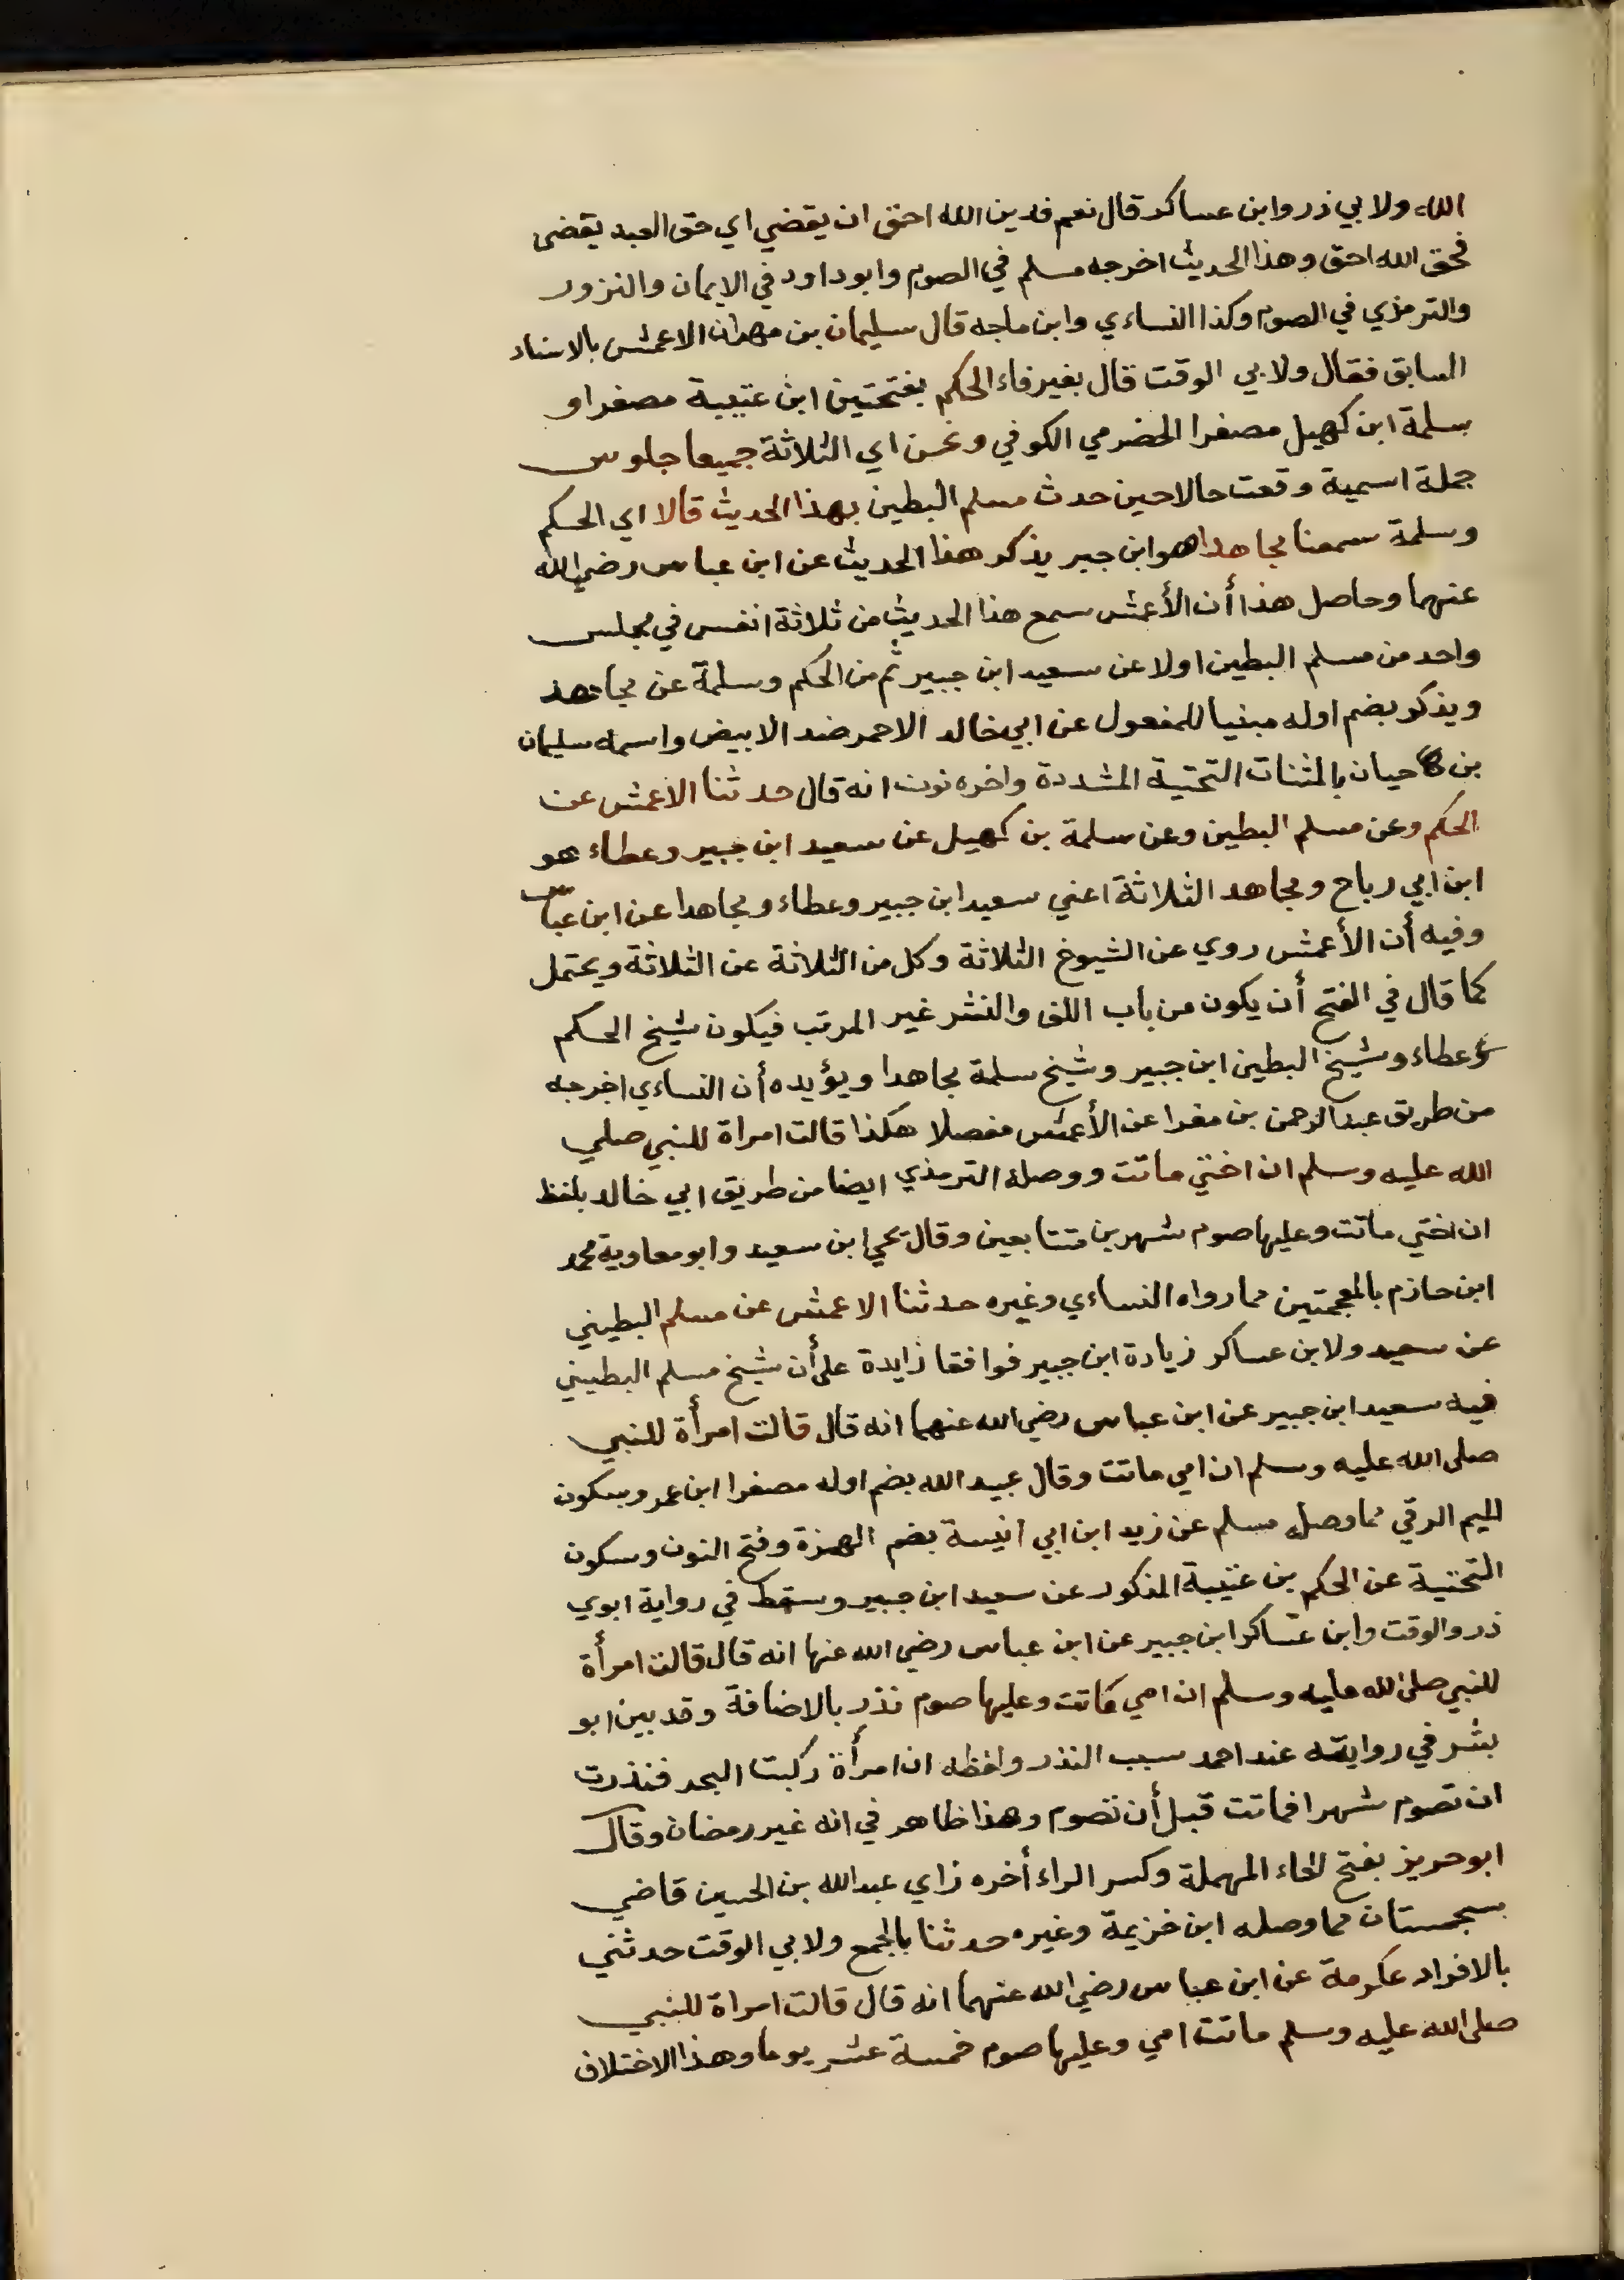 الله ولابي ذر وابن عساكر قال نعم فدين الله احق ان يقضي اي حق العبد يقضى
فحق الله احق وهذا الحديث اخرجه مسلم في الصوم وابوداود في الايمان والنزور
والترمذي في الصوم وكذا النساءي وابن ماجه قال سليمان بن مهران الاعمش بالاسناد
السابق فقال ولابي الوقت قال بغير فاء الحكم بفتحتين ابن عتيبة مصغرا و
سلمة ابن كهيل مصغرا الحضرمي الكوفي ونحن اي الثلاثة جميعا جلوس
جملة اسمية وقعت حالا حين حدث مسلم البطين بهذا الحديث قالا اي الحكم
وسلمة سمعنا مجاهدا هو ابن جبر يذكر هذا الحديث عن ابن عباس رضي الله
عنهما وحاصل هذا أن الأعمش سمع هذا الحديث من ثلاثة انفس في مجلس
واحد من مسلم البطين اولا عن سعيد ابن جبير ثم من الحكم وسلمة عن مجاهد
ويذكر بضم اوله مبنيا للمفعول عن ابي خالد الاحمر ضد الابيض واسمه سليمان
بن حيان بالمثنات التحتية المشددة واخره نون انه قال حدثنا الاعمش عن
الحكم وعن مسلم البطين وعن سلمة بن كهيل عن سعيد ابن جبير وعطاء هو
ابن ابي رباح ومجاهد الثلاثة اعني سعيد ابن جبير وعطاء ومجاهدا عن ابن عباس
وفيه أن الأعمش روي عن الشيوخ الثلاثة وكل من الثلاثة عن الثلاثة ويحتمل
كما قال في الفتح أن يكون من باب اللف والنشر غير المرتب فيكون شيخ الحكم
وعطاء وشيخ البطين ابن جبير وشيخ سلمة مجاهدا ويؤيده أن النساءي اخرجه
من طريق عبد الرحمن بن مغرا عن الأعمش مفصلا هكذا قالت امراة للنبي صلي
الله عليه وسلم ان اختي ماتت ووصله الترمذي ايضا من طريق ابي خالد بلفظ
ان اختي ماتت وعليها صوم شهرين متتابعين وقال يحي ابن سعيد وابو معاوية محمد
ابن خازم بالمعجمتين مما رواه النساءي وغيره حدثنا الاعمش عن مسلم البطيني
عن سعيد ولابن عساكر زيادة ابن جبير فوافقا زايدة علي أن شيخ مسلم البطيني
فيه سعيد ابن جبير عن ابن عباس رضي الله عنهما انه قال قالت امرأة للنبي
صلى الله عليه وسلم ان امي ماتت وقال عبيد الله بضم اوله مصغرا ابن عمر وبسكون
الميم الرقي مما وصله مسلم عن زيد ابن ابي انيسة بضم الهمزة وفتح النون وسكون
التحتية عن الحكم بن عتيبة المذكور عن سعيد ابن جبير وسقط في رواية ابوي
ذر والوقت وابن عساكر ابن جبير عن ابن عباس رضي الله عنها انه قال قالت امرأة
للنبي صلى الله عليه وسلم ان امي ماتت وعليها صوم نذر بالاضافة وقد بين ابو
بشر في روايته عند احمد سبب النذر ولفظه ان امرأة ركبت البحر فنذرت
ان تصوم شهرا فماتت قبل أن تصوم وهذا ظاهر في انه غير رمضان وقال
ابو حريز بفتح الحاء المهملة وكسر الراء أخره زاي عبد الله بن الحسين قاضي
سجستان مما وصله ابن خزيمة وغيره حدثنا بالجمع ولابي الوقت حدثني
بالافراد عكرمة عن ابن عباس رضي الله عنهما انه قال قالت امراة للنبي
صلى الله عليه وسلم ماتت امي وعليها صوم خمسة عشر يوما وهذا الاختلاف